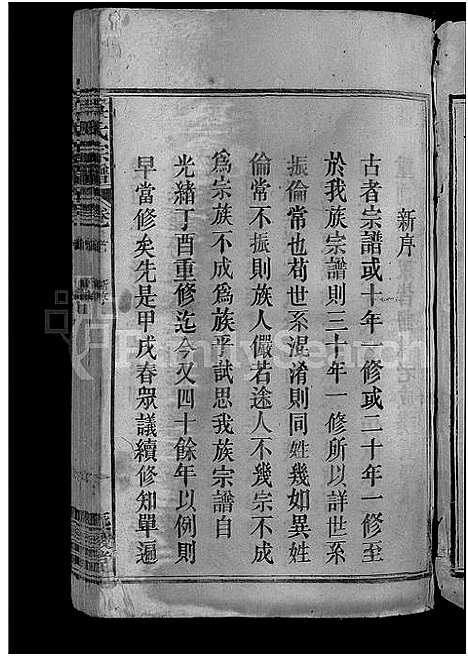 新序
古者宗譜或十年一修或二十年一修至
於我族宗譜則三十年一修所以詳世系
振倫常也苟世系混淆則同姓幾如異姓
倫常不振則族人儼若途人不幾宗不成
為宗族不成為族乎試思我族宗譜自
光緒丁酉重修迄今又四十餘年以例則
早當修矣先是甲戌春眾議續修知單遍
氏宗譜
FamilySearch